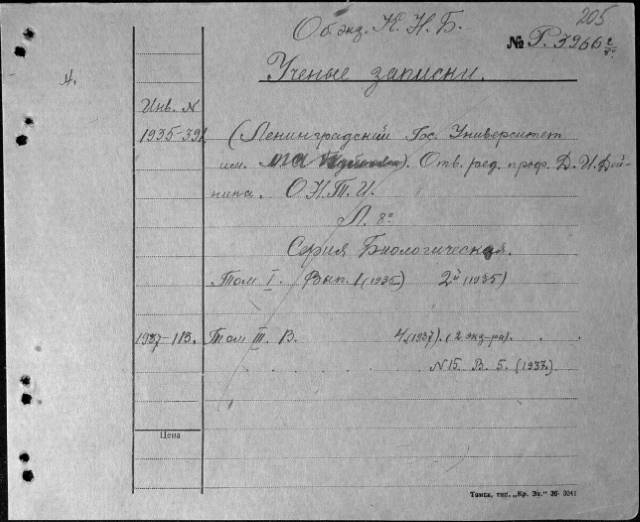 205
Об. экз. К. Н. Б.
№ Р. 3966
Ученые записки.
Инв. №
1935-391 (Ленинградский Гос. Университет
им. Отв. ред. проф. Д. И. Дей-
ника. О.Н.Т.И.
Л. 8°
Серия Биологическая.
Том I. Вып. 1 (1935) 2й (1935)
1937-113. Том III. В. 4 (1937). (2 экз-ра).
N 15. В. 5. (1937).
Цена
Томск, тип. „Кр. Зн.“ 36-3041